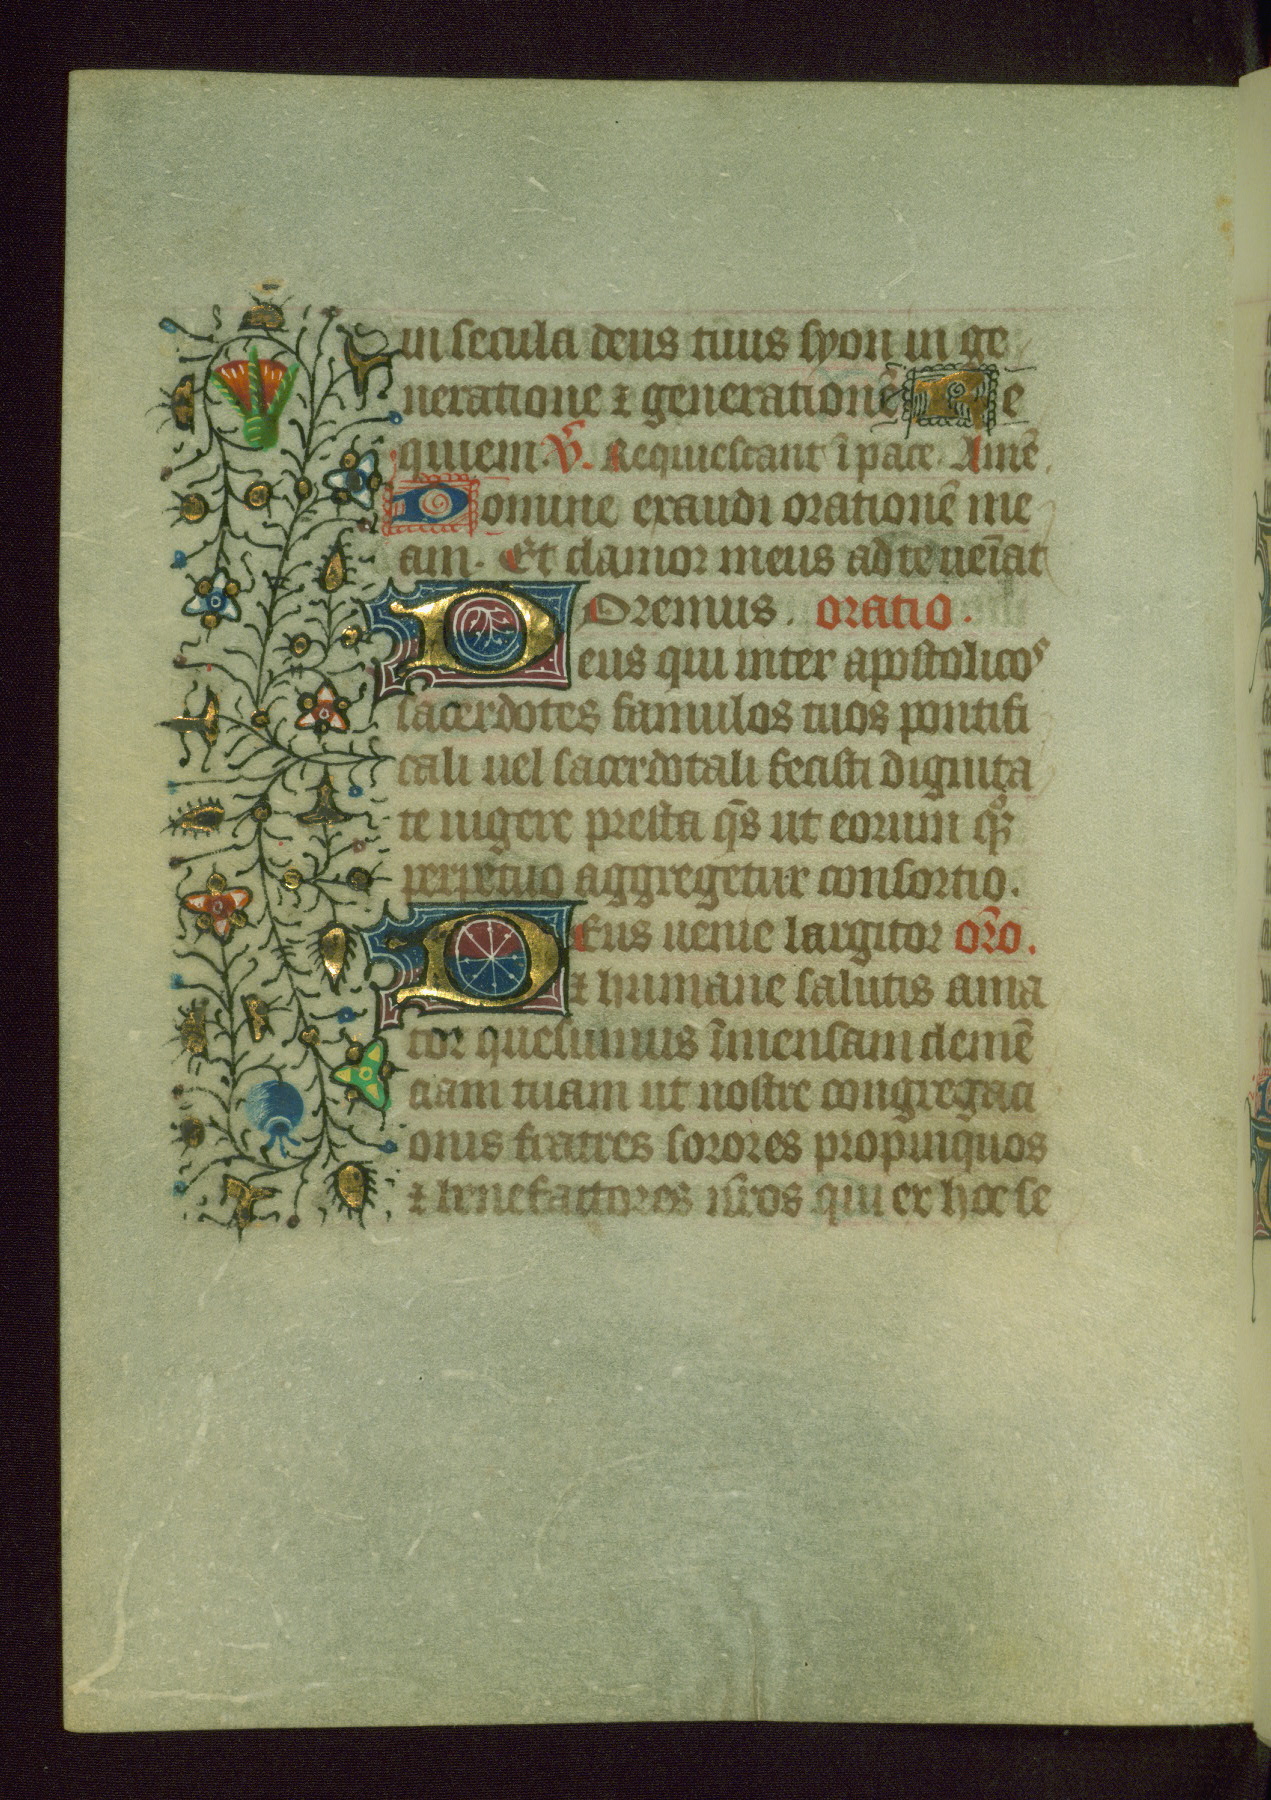 in secula deus tuus syon in ge
neratione ⁊ generationē Re
quiem. V̄. Requiescant ī pace. Amē.
Domine exaudi orationē me
am. Et clamor meus ad te uēiat
Oremus. oratio.
Deus qui inter apostolicos
sacerdotes famulos tuos pontifi
cali uel sacerdotali fecisti dignita
te uigere presta q̄s ut eorum q̄₃
perpetuo aggregetur consortio.
DEus uenie largitor or̄o.
⁊ humane salutis ama
tor quesumus īmensam clemē
ciam tuam ut nostre congregaci
onis fratres sorores propinquos
⁊ benefactores n̄ros qui ex hoc se